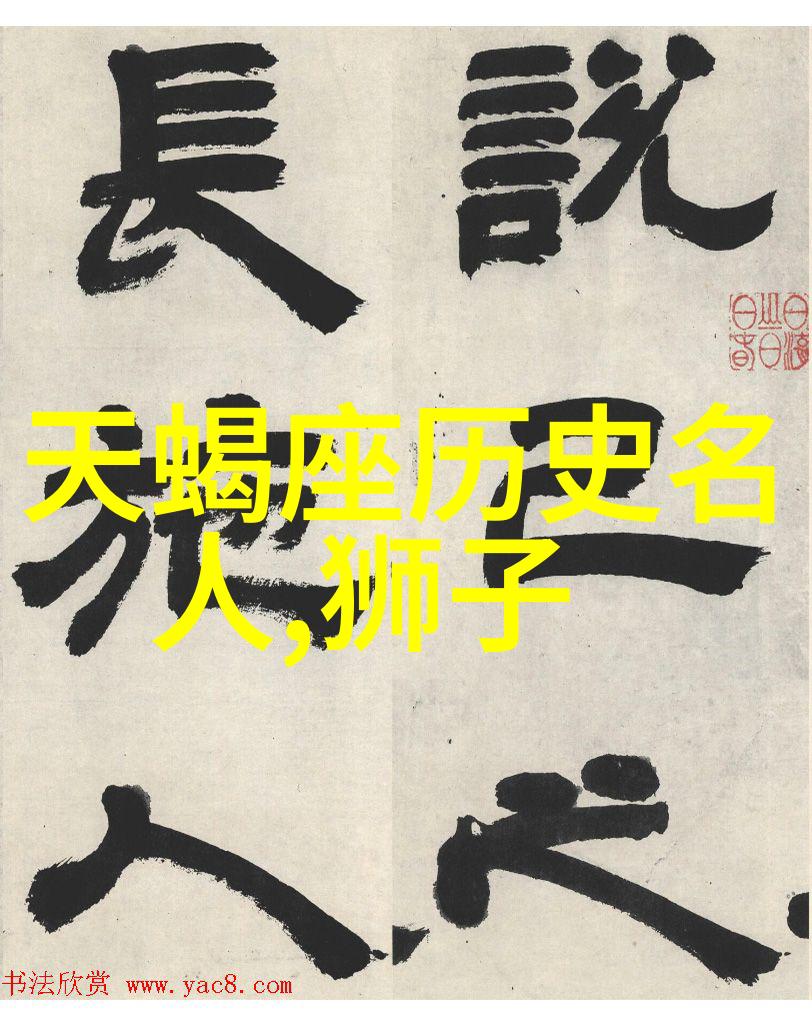 說己之
長施人
天蝎座历史名
人,狮子
书法欣赏 www.yac8.com